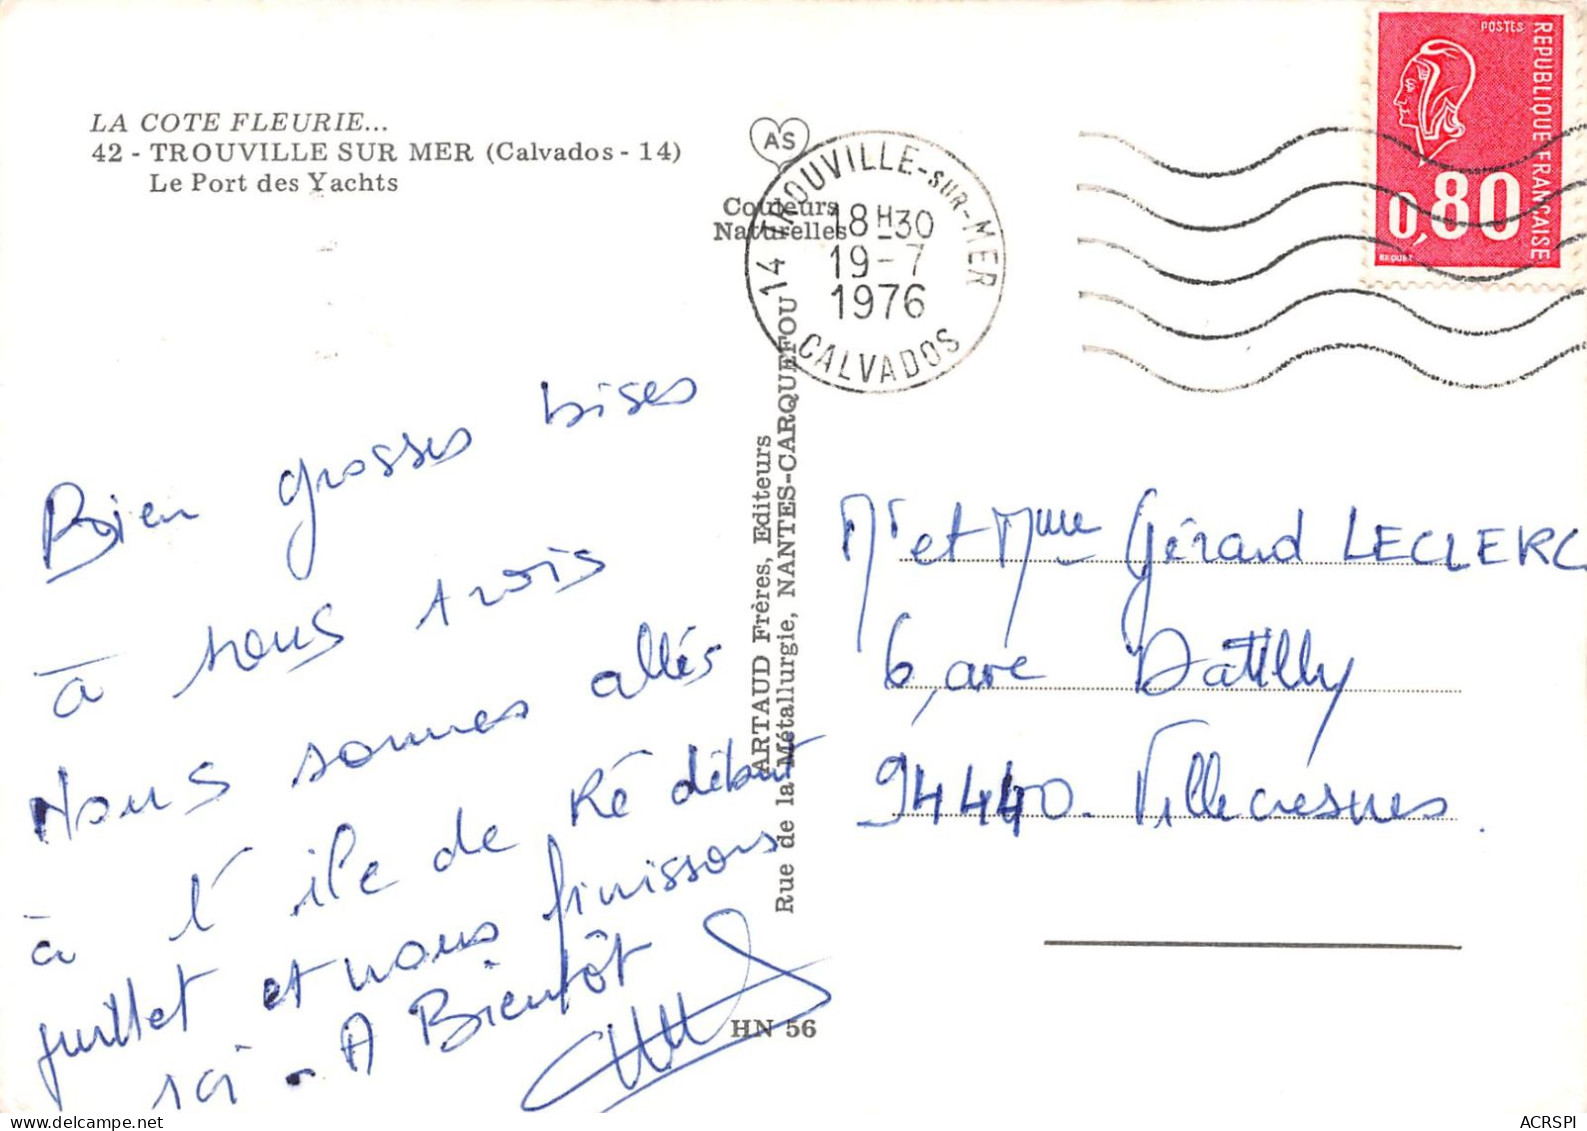 LA COTE FLEURIE...
42 - TROUVILLE SUR MER (Calvados - 14)
Le Port des Yachts
A S
Couleurs
Naturelles
14 TROUVILLE-SUR-MER
18H30
19-7
1976
CALVADOS
POSTES
REPUBLIQUE FRANÇAISE
0,80
BEQUET
Bien grosses bises
à nous trois
Nous sommes allés
à l'île de Ré début
juillet et nous finissons
ici - A Bientôt
ARTAUD Frères, Editeurs
Rue de la Métallurgie, NANTES-CARQUEFOU
HN 56
Mr et Mme Gérard LECLERC
6, ave
94440. Villecresnes.
ACRSPI